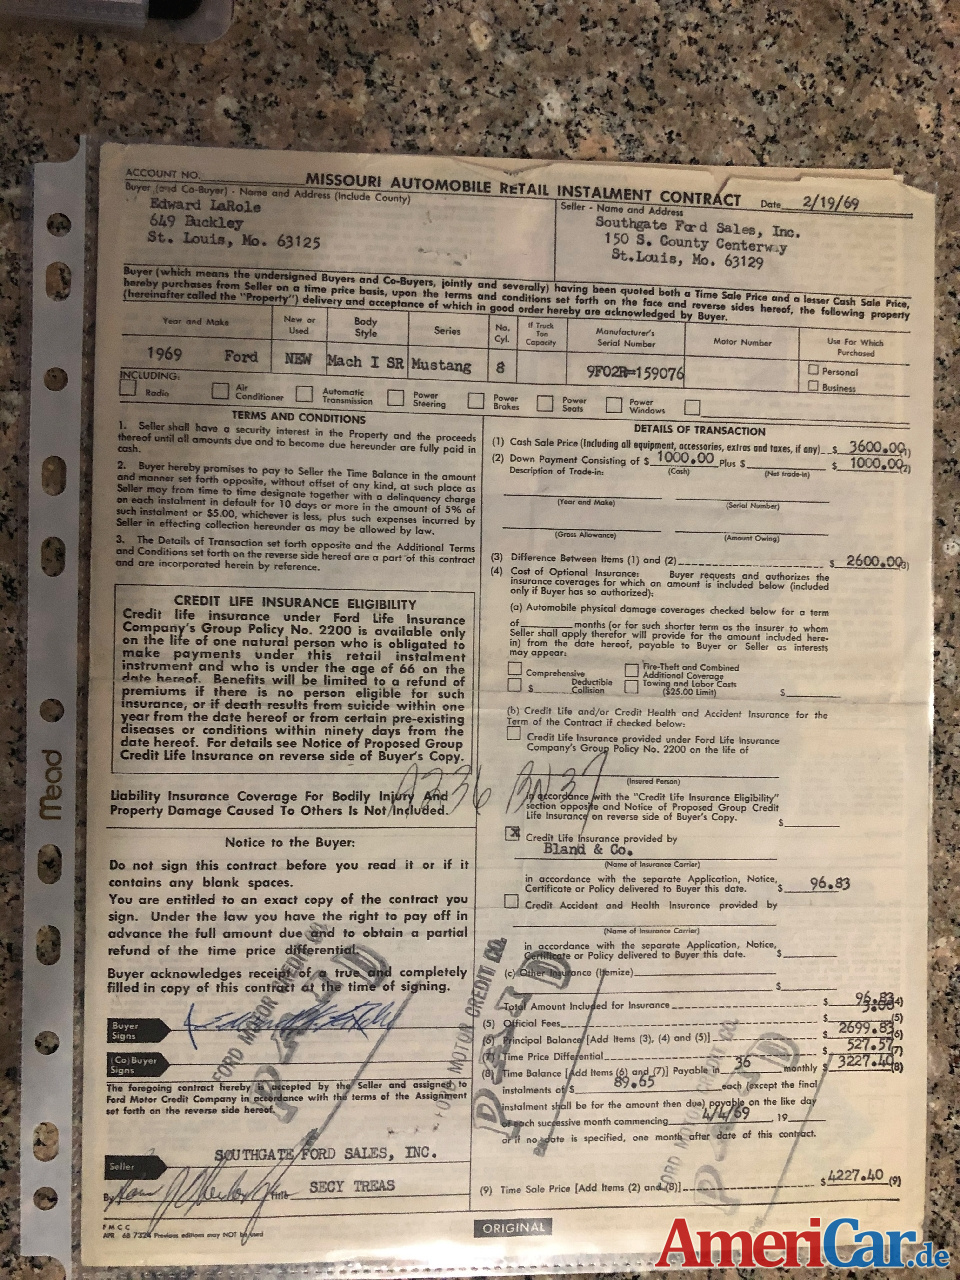 ACCOUNT NO.
MISSOURI AUTOMOBILE RETAIL INSTALMENT CONTRACT
Date 2/19/69
Buyer (and Co-Buyer) - Name and Address (Include County)
Edward LaRole
649 Buckley
St. Louis, Mo. 63125
Seller - Name and Address
Southgate Ford Sales, Inc.
150 S. County Centerway
St.Louis, Mo. 63129
Buyer (which means the undersigned Buyers and Co-Buyers, jointly and severally) having been quoted both a Time Sale Price and a lesser Cash Sale Price,
hereby purchases from Seller on a time price basis, upon the terms and conditions set forth on the face and reverse sides hereof, the following property
(hereinafter called the "Property") delivery and acceptance of which in good order hereby are acknowledged by Buyer.
Year and Make
New or Used
Body Style
Series
No. Cyl.
If Truck Ton Capacity
Manufacturer's Serial Number
Motor Number
Use For Which Purchased
1969 Ford NEW Mach I SR Mustang 8 9F02R=159076
Personal
Business
INCLUDING:
Radio
Air Conditioner
Automatic Transmission
Power Steering
Power Brakes
Power Seats
Power Windows
TERMS AND CONDITIONS
1. Seller shall have a security interest in the Property and the proceeds
thereof until all amounts due and to become due hereunder are fully paid in
cash.
2. Buyer hereby promises to pay to Seller the Time Balance in the amount
and manner set forth opposite, without offset of any kind, at such place as
Seller may from time to time designate together with a delinquency charge
on each instalment in default for 10 days or more in the amount of 5% of
such instalment or $5.00, whichever is less, plus such expenses incurred by
Seller in effecting collection hereunder as may be allowed by law.
3. The Details of Transaction set forth opposite and the Additional Terms
and Conditions set forth on the reverse side hereof are a part of this contract
and are incorporated herein by reference.
CREDIT LIFE INSURANCE ELIGIBILITY
Credit life insurance under Ford Life Insurance
Company's Group Policy No. 2200 is available only
on the life of one natural person who is obligated to
make payments under this retail instalment
instrument and who is under the age of 66 on the
date hereof. Benefits will be limited to a refund of
premiums if there is no person eligible for such
insurance, or if death results from suicide within one
year from the date hereof or from certain pre-existing
diseases or conditions within ninety days from the
date hereof. For details see Notice of Proposed Group
Credit Life Insurance on reverse side of Buyer's Copy.
Liability Insurance Coverage For Bodily Injury And
Property Damage Caused To Others Is Not Included.
Notice to the Buyer:
Do not sign this contract before you read it or if it
contains any blank spaces.
You are entitled to an exact copy of the contract you
sign. Under the law you have the right to pay off in
advance the full amount due and to obtain a partial
refund of the time price differential.
Buyer acknowledges receipt of a true and completely
filled in copy of this contract at the time of signing.
Buyer Signs
(Co)Buyer Signs
The foregoing contract hereby is accepted by the Seller and assigned to
Ford Motor Credit Company in accordance with the terms of the Assignment
set forth on the reverse side hereof.
Seller
SOUTHGATE FORD SALES, INC.
By
Title SECY TREAS
FMCC
APR. 68 7324 Previous editions may NOT be used
ORIGINAL
DETAILS OF TRANSACTION
(1) Cash Sale Price (Including all equipment, accessories, extras and taxes, if any) $ 3600.00 (1)
(2) Down Payment Consisting of $ 1000.00 Plus $ $ 1000.00 (2)
Description of Trade-in: (Cash) (Net trade-in)
(Year and Make) (Serial Number)
(Gross Allowance) (Amount Owing)
(3) Difference Between Items (1) and (2) $ 2600.00 (3)
(4) Cost of Optional Insurance: Buyer requests and authorizes the
insurance coverages for which an amount is included below (included
only if Buyer has so authorized):
(a) Automobile physical damage coverages checked below for a term
of months (or for such shorter term as the insurer to whom
Seller shall apply therefor will provide for the amount included here-
in) from the date hereof, payable to Buyer or Seller as interests
may appear:
Comprehensive
Fire-Theft and Combined Additional Coverage
$ Deductible Collision
Towing and Labor Costs ($25.00 Limit) $
(b) Credit Life and/or Credit Health and Accident Insurance for the
Term of the Contract if checked below:
Credit Life Insurance provided under Ford Life Insurance
Company's Group Policy No. 2200 on the life of
(Insured Person)
in accordance with the "Credit Life Insurance Eligibility"
section opposite and Notice of Proposed Group Credit
Life Insurance on reverse side of Buyer's Copy. $
x Credit Life Insurance provided by
Bland & Co.
(Name of Insurance Carrier)
in accordance with the separate Application, Notice,
Certificate or Policy delivered to Buyer this date. $ 96.83
Credit Accident and Health Insurance provided by
(Name of Insurance Carrier)
in accordance with the separate Application, Notice,
Certificate or Policy delivered to Buyer this date. $
(c) Other Insurance (Itemize) $
Total Amount Included for Insurance $ 96.83 (4)
(5) Official Fees $ 3.00 (5)
(6) Principal Balance [Add Items (3), (4) and (5)] $ 2699.83 (6)
(7) Time Price Differential $ 527.57 (7)
(8) Time Balance [Add Items (6) and (7)] Payable in 36 monthly $ 3227.40 (8)
instalments of $ 89.65 each (except the final
instalment shall be for the amount then due) payable on the like day
of each successive month commencing 4/4/69, 19
or if no date is specified, one month after date of this contract.
(9) Time Sale Price [Add Items (2) and (8)] $ 4227.40 (9)
FORD MOTOR CREDIT CO.
PAID
FORD MOTOR CREDIT CO.
PAID
FORD MOTOR CREDIT CO.
PAID
Mead
AmeriCar.de